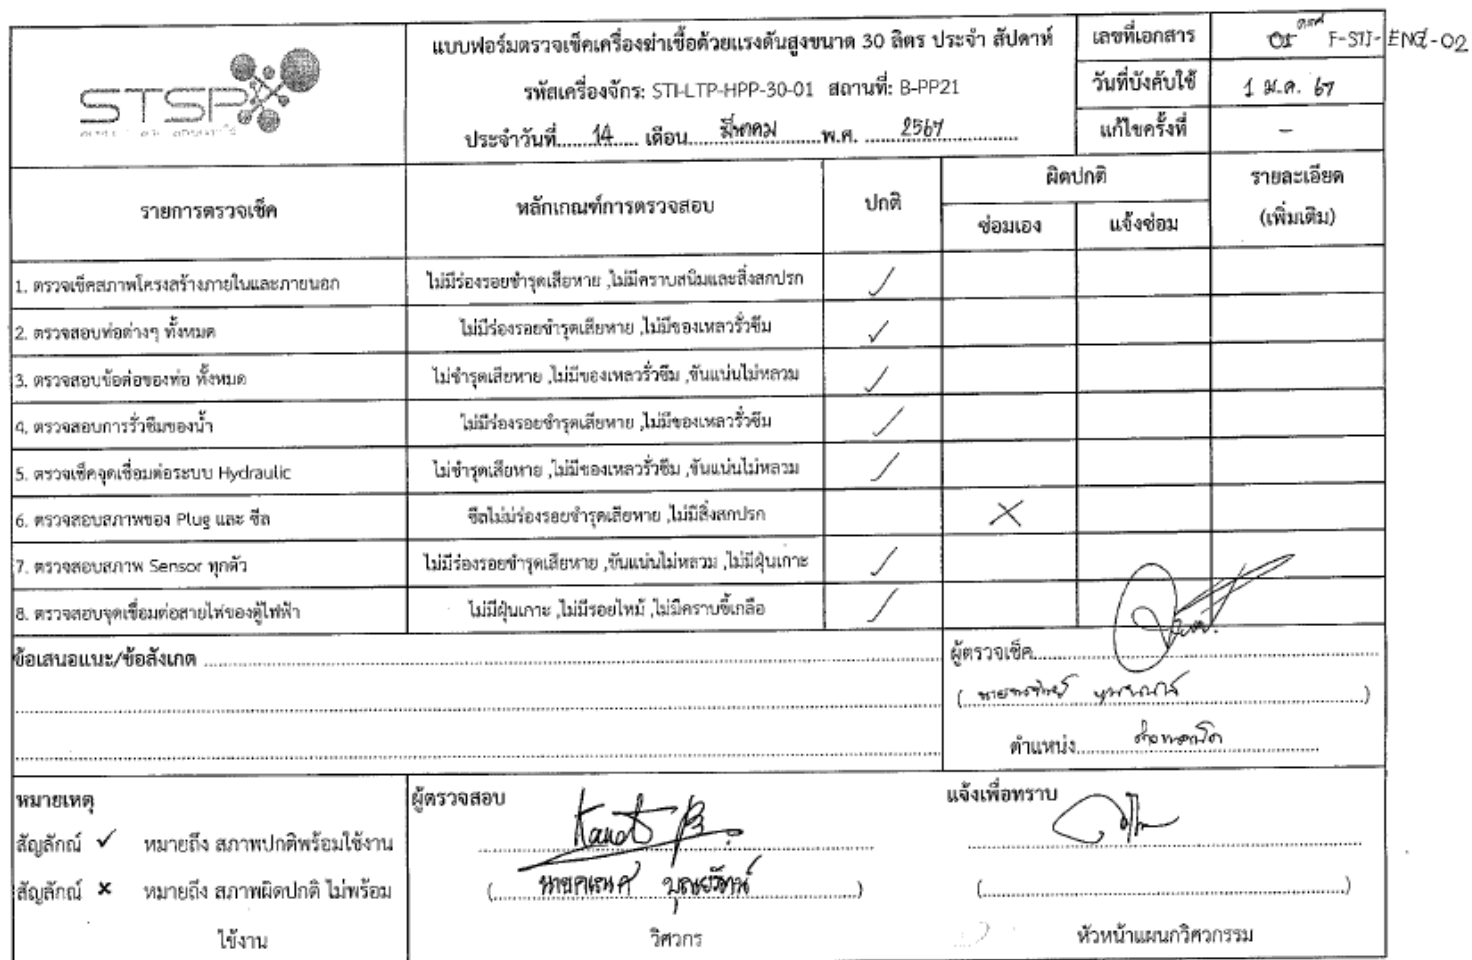 STSP
แบบฟอร์มตรวจเช็คเครื่องฆ่าเชื้อด้วยแรงดันสูงขนาด 30 ลิตร ประจำ สัปดาห์
รหัสเครื่องจักร: STI-LTP-HPP-30-01 สถานที่: B-PP21
ประจำวันที่ 14 เดือน มีนาคม พ.ศ. 2567
เลขที่เอกสาร F-STI-ENG-02
วันที่บังคับใช้ 1 ม.ค. 67
แก้ไขครั้งที่ -
รายการตรวจเช็ค หลักเกณฑ์การตรวจสอบ ปกติ ผิดปกติ รายละเอียด
ซ่อมเอง แจ้งซ่อม (เพิ่มเติม)
1. ตรวจเช็คสภาพโครงสร้างภายในและภายนอก ไม่มีร่องรอยชำรุดเสียหาย ,ไม่มีคราบสนิมและสิ่งสกปรก ✓
2. ตรวจสอบท่อต่างๆ ทั้งหมด ไม่มีร่องรอยชำรุดเสียหาย ,ไม่มีของเหลวรั่วซึม ✓
3. ตรวจสอบข้อต่อของท่อ ทั้งหมด ไม่ชำรุดเสียหาย ,ไม่มีของเหลวรั่วซึม ,ขันแน่นไม่หลวม ✓
4. ตรวจสอบการรั่วซึมของน้ำ ไม่มีร่องรอยชำรุดเสียหาย ,ไม่มีของเหลวรั่วซึม ✓
5. ตรวจเช็คจุดเชื่อมต่อระบบ Hydraulic ไม่ชำรุดเสียหาย ,ไม่มีของเหลวรั่วซึม ,ขันแน่นไม่หลวม ✓
6. ตรวจสอบสภาพของ Plug และ ซีล ซีลไม่มร่องรอยชำรุดเสียหาย ,ไม่มีสิ่งสกปรก ✗
7. ตรวจสอบสภาพ Sensor ทุกตัว ไม่มีร่องรอยเสียหาย ,ขันแน่นไม่หลวม ,ไม่มีฝุ่นเกาะ ✓
8. ตรวจสอบจุดเชื่อมต่อสายไฟของตู้ไฟฟ้า ไม่มีฝุ่นเกาะ ,ไม่มีรอยไหม้ ,ไม่มีคราบขี้เกลือ ✓
ข้อเสนอแนะ/ข้อสังเกต
ผู้ตรวจเช็ค
ตำแหน่ง
หมายเหตุ
สัญลักณ์ ✓ หมายถึง สภาพปกติพร้อมใช้งาน
สัญลักณ์ ✗ หมายถึง สภาพผิดปกติ ไม่พร้อม
ใช้งาน
ผู้ตรวจสอบ
Kanet B.
(นายคเณศ บุณยรัตน์)
วิศวกร
แจ้งเพื่อทราบ
หัวหน้าแผนกวิศวกรรม